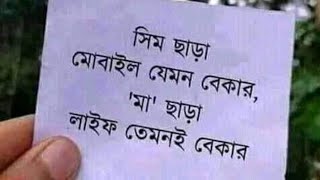 সিম ছাড়া
মোবাইল যেমন বেকার,
'মা' ছাড়া
লাইফ তেমনই বেকার